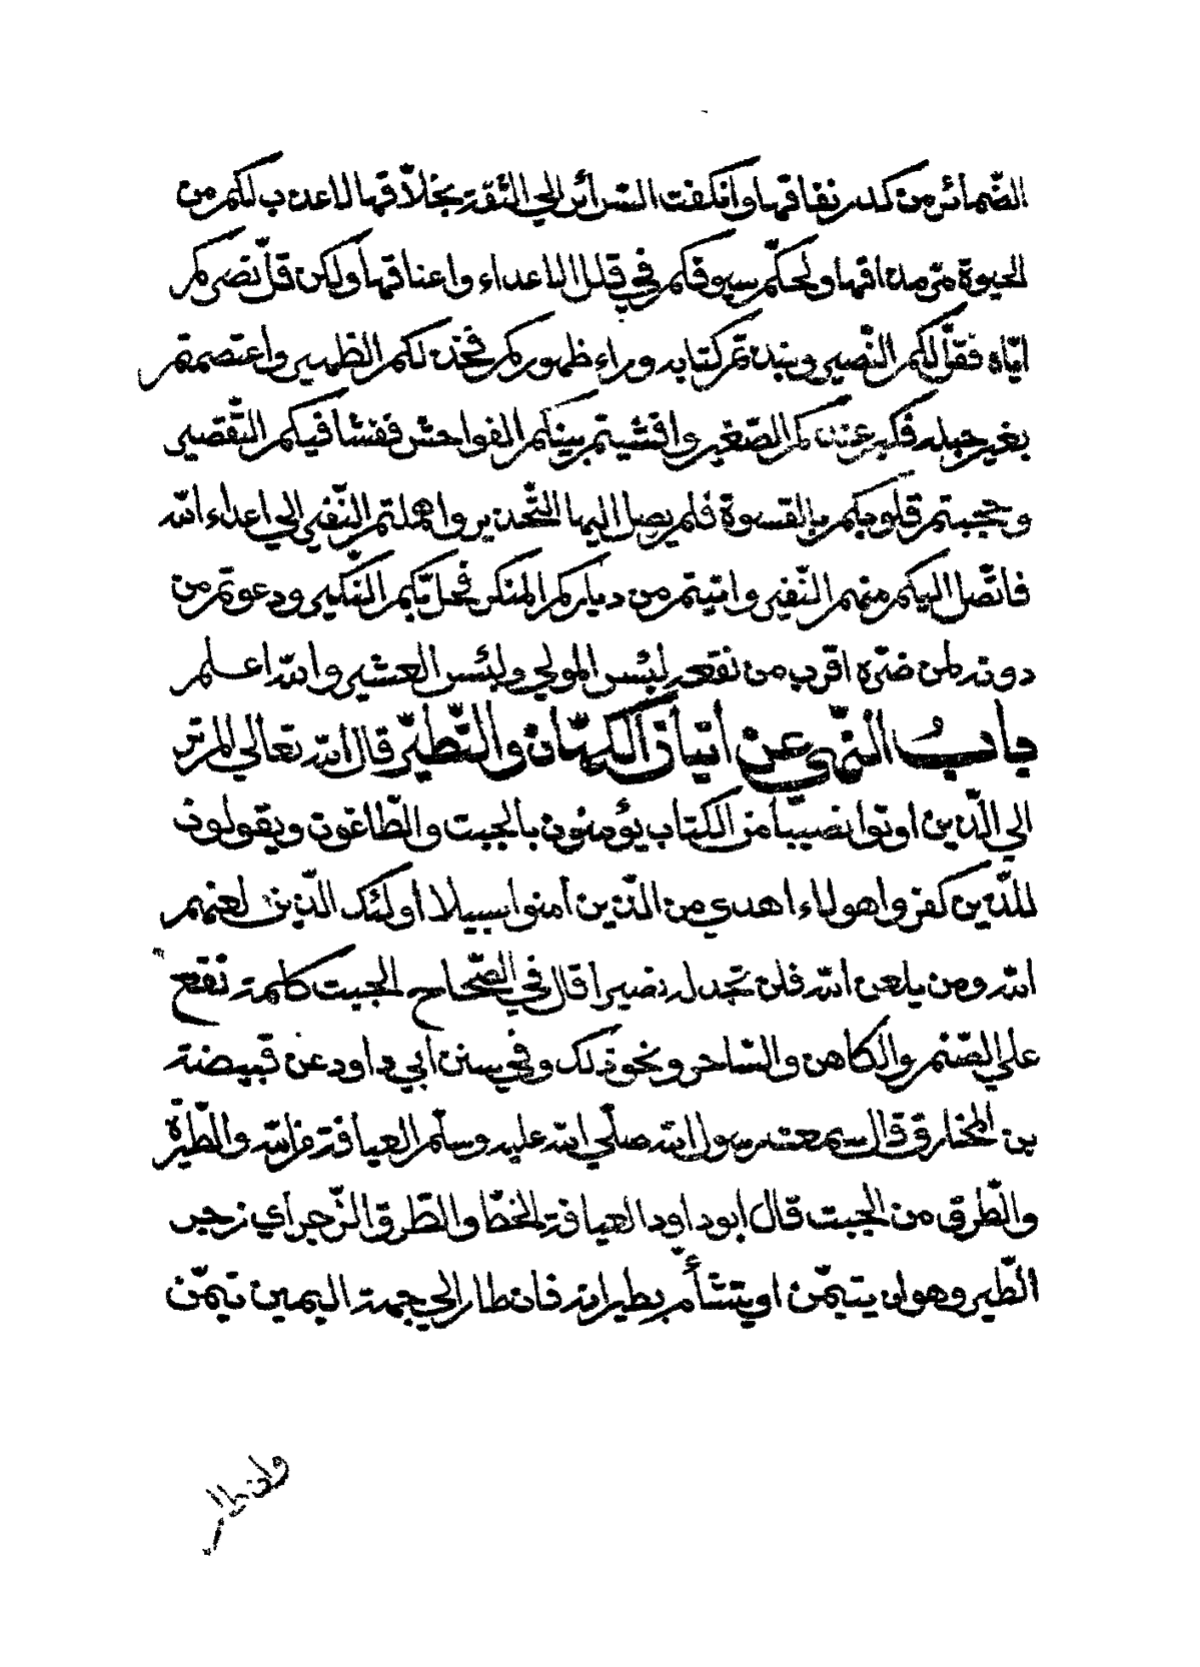 الضّمائر من كدر نفاقها وانكفت السّرائر الي الثقة بخلاّقها لاعذب لكم من
الحيوة مرّ مذاقها ولحكّم سيوفكم في قلل الاعداء واعناقها ولكن قلّ نصركم
ايّاه فقلّ لكم النّصير ونبذتم كتابه وراء ظهوركم فخذلكم الظهير واعتصمتم
بغير حبله فكبر عندكم الصّغير وافشيتم بينكم الفواحش ففشا فيكم التّقصير
وحجبتم قلوبكم بالقسوة فلم يصل اليها التّحذير واهملتم النّفير الي اعداء الله
فاتّصل اليكم منهم النّفير واتيتم من دياركم المنكر فحلّ بكم النّكير ودعوتم من
دونه لمن ضرّه اقرب من نفعه لبئس المولي ولبئس العشير والله اعلم
باب النّهي عن اتيان الكهّان والتّطيّر قال الله تعالي الم تر
الي الّذين اوتوا نصيباً من الكتاب يؤمنون بالجبت والطّاغوت ويقولون
للّذين كفروا هولاء اهدي من الّذين آمنوا سبيلا اولئك الّذين لعنهم
الله ومن يلعن الله فلن تجد له نصيراً قال في الصّحاح الجبت كلمة تقع
علي الصّنم والكاهن والسّاحر ونحو ذلك وفي سنن أبي داود عن قبيصة
بن المخارق قال سمعت رسول الله صلّي الله عليه وسلّم العيافة والطّيرة
والطّرق من الجبت قال ابو داود العيافة الخطّ والطّرق الزّجر أي زجر
الطّير وهو ان يتيمّن او يتشأّم بطيرانه فان طار الي جهة اليمين تيمّن
وان طار